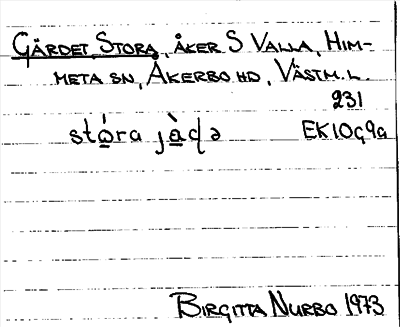 GÄRDET, STORA, ÅKER S VALLA, HIM-
META SN, ÅKERBO HD, VÄSTM.L.
231
stó̲ra jà̲ɖə EK10G9a
BIRGITTA NURBO 1973